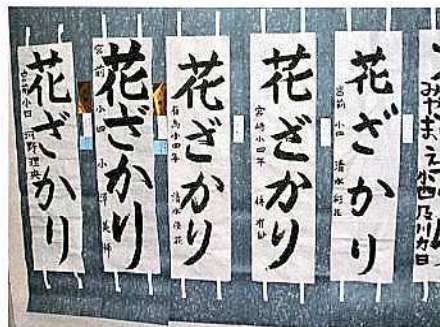 花ざかり
宮前小四 河野理央
花ざかり
宮前小四 小澤美輝
花ざかり
有馬小四年 清水優花
花ざかり
宮崎小四年
花ざかり
宮前小四 清水彩花
みやまえ
小四 及川